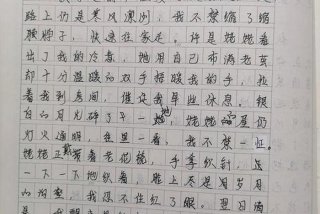 路上仍是寒风凛冽，我不禁缩了缩
脖子，快速往家走。许是姥姥看
出了我的冷意，她用自己布满老茧
却十分温暖的双手捂着我的手，拉
着我到房间，催促我早些休息。银
白的月光碎了一地，姥姥的屋仍
灯火通明，往里一看，我不禁一怔。
姥姥正戴着老花镜，手拿织针，这
一下一下地织着，脸上尽是岁月
的沟壑，我忍不住红了眼。翌日清